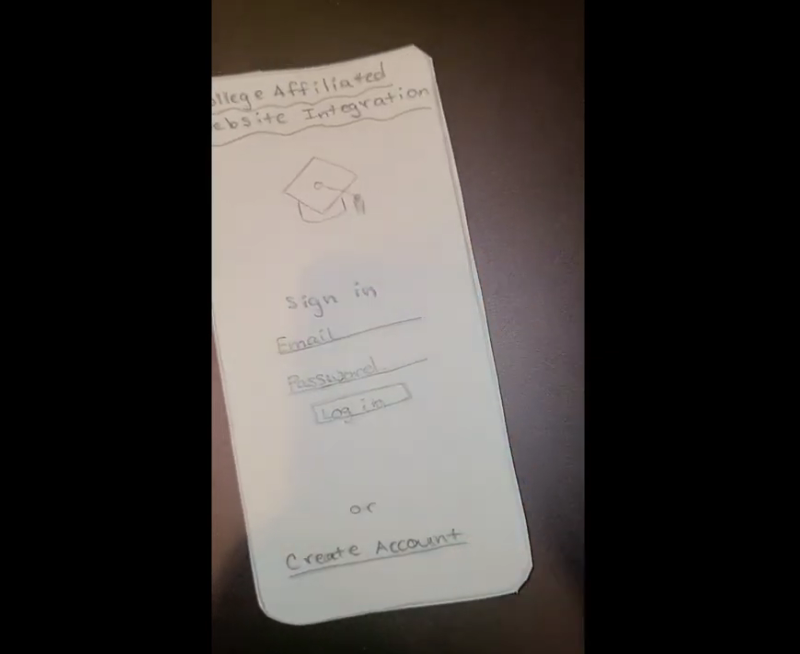 ollege Affiliated
ebsite Integration
sign in
Email
Password
Log in
or
Create Account